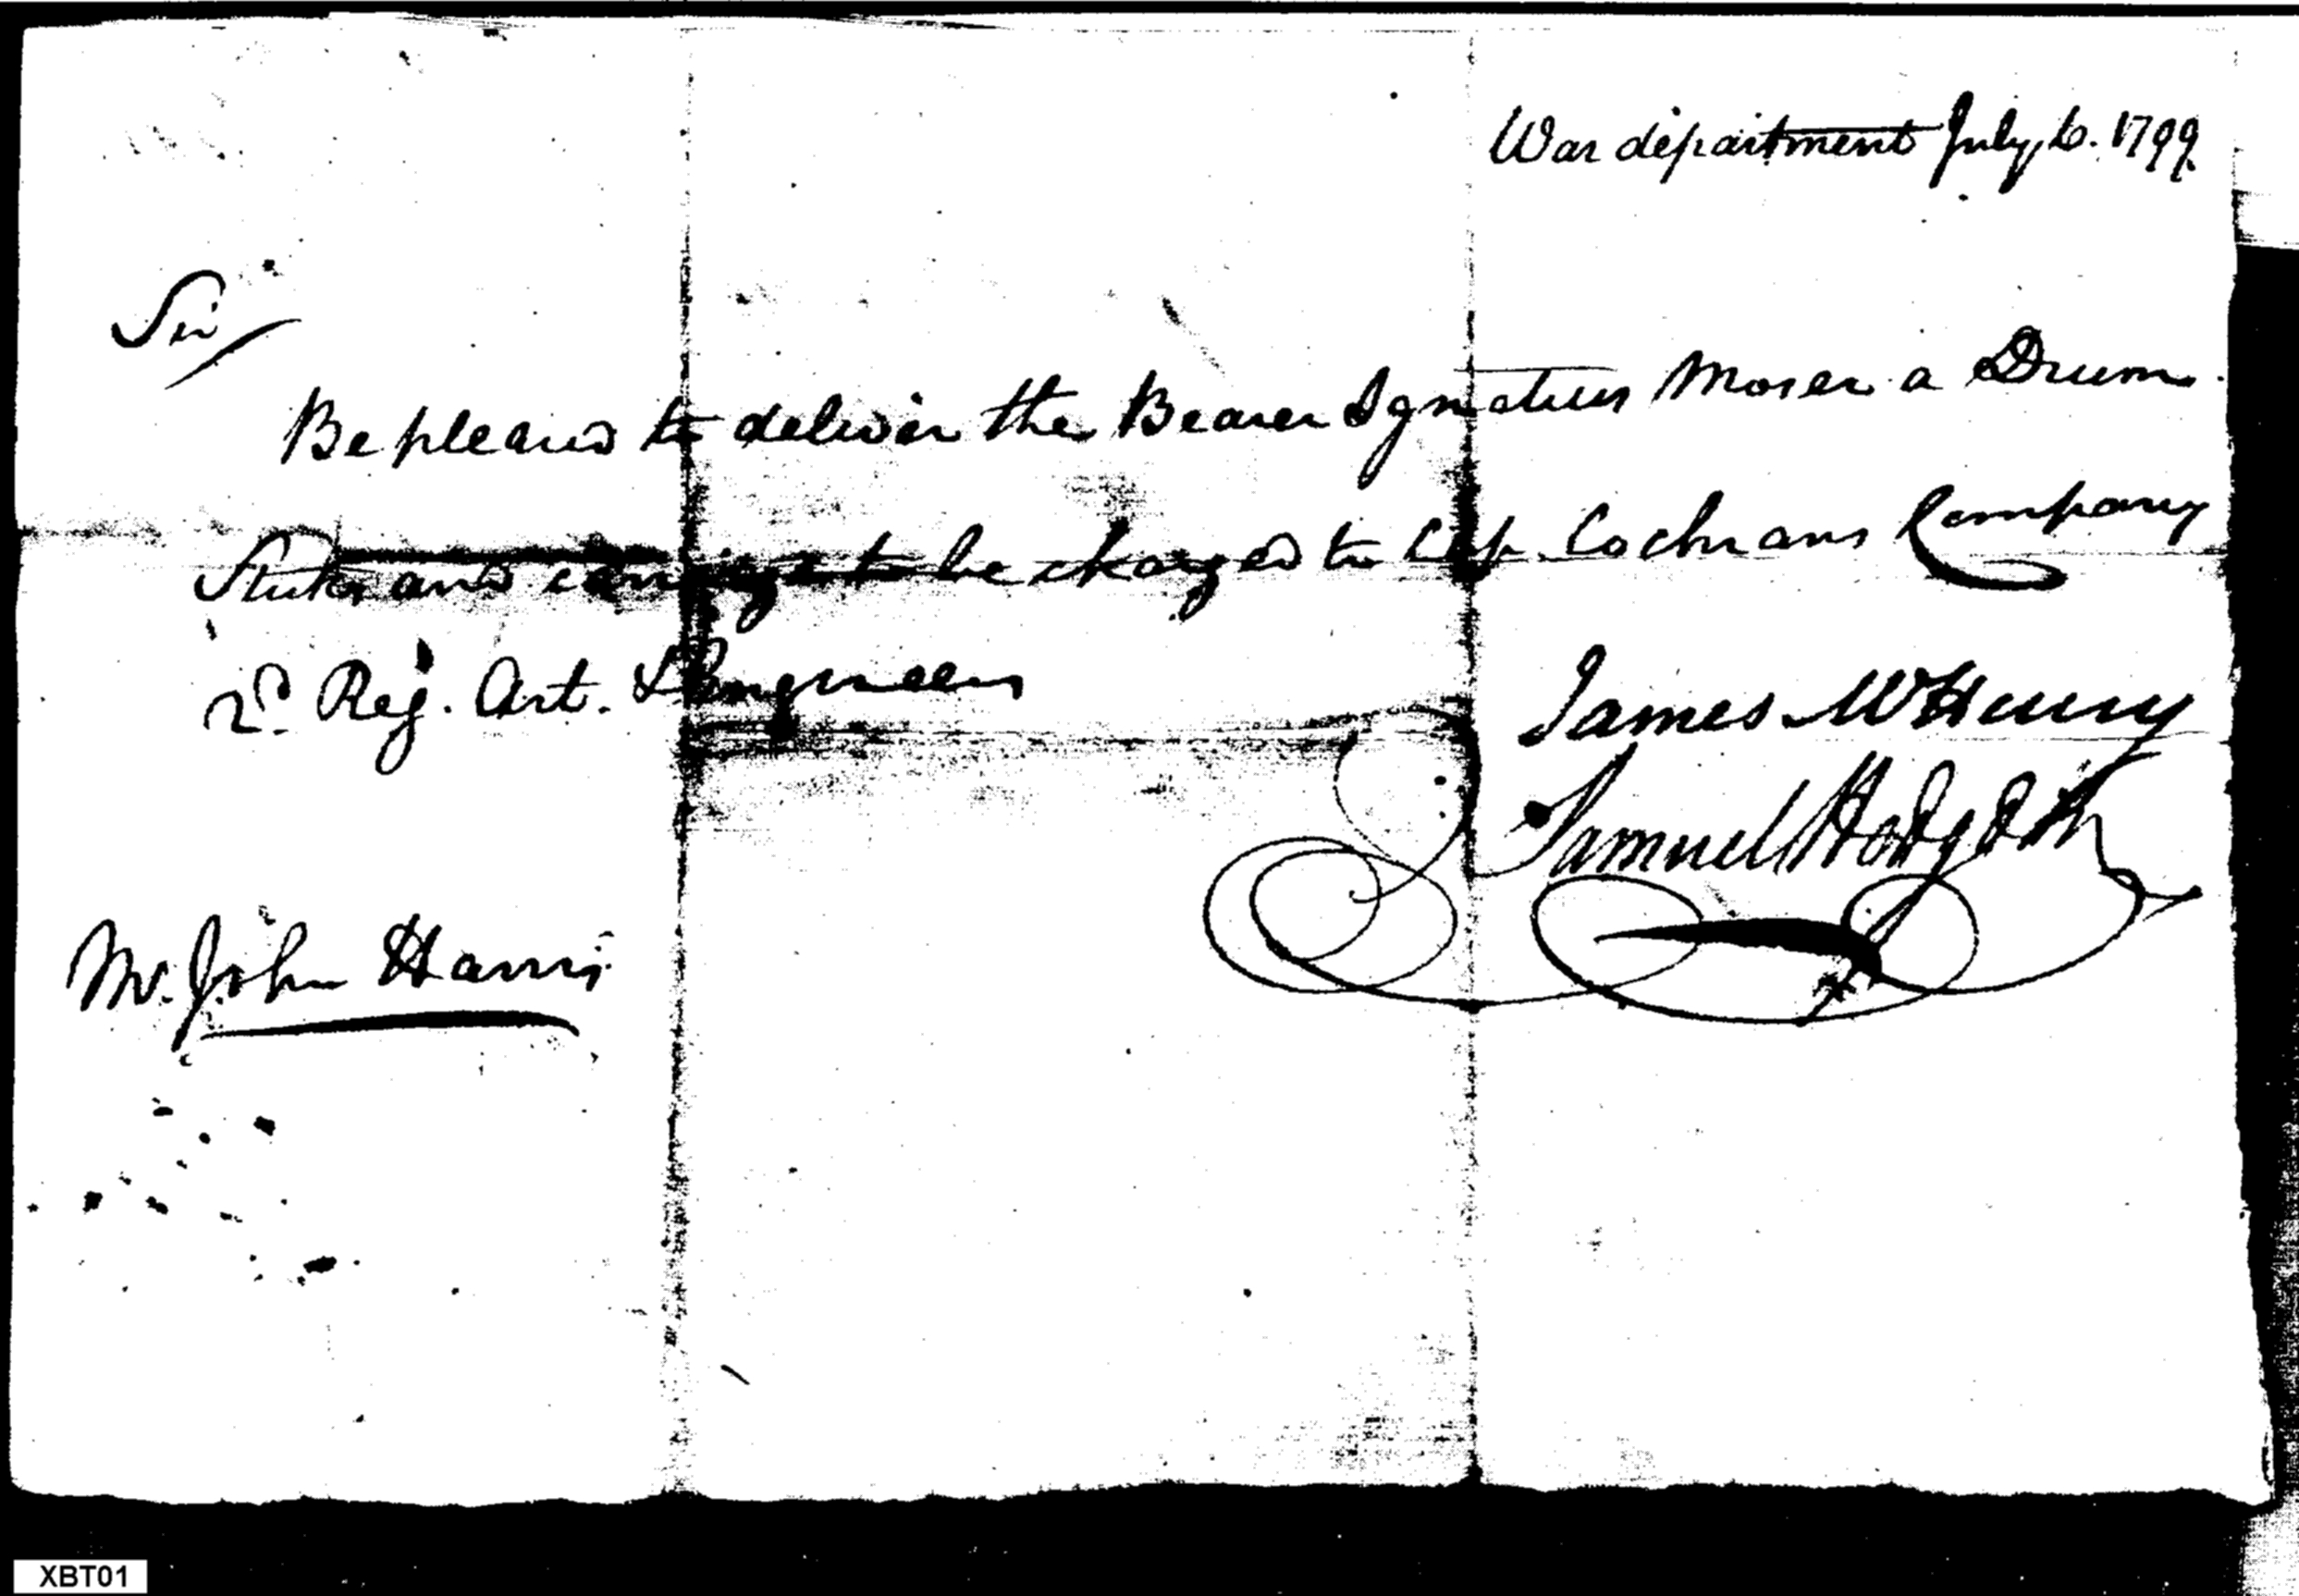 War department July, 6. 1799.
Sir/
Be pleased to deliver the Bearer Ignatius Moser a Drum
Sticks and carriage to be charged to Cap. Cochrans Company
2d. Reg. Art. & Engineers
James McHenry
Samuel Hodgdon
Mr. John Harris
XBT01